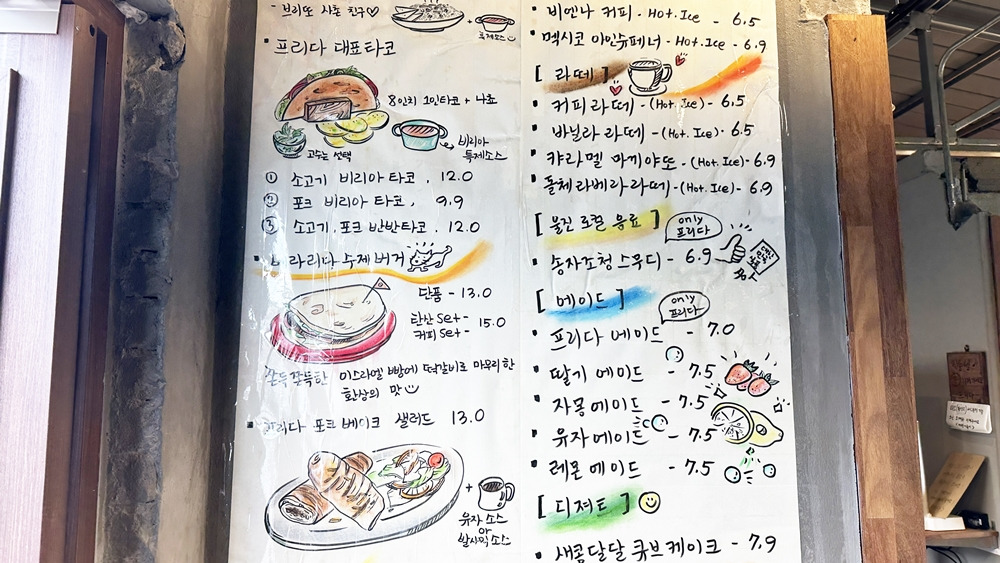 - 브리또 사촌 친구♡
+ 특제소스
▪ 프리다 대표타코
8인치 1인타코 + 나쵸
고수는 선택
비리아
특제소스
① 소고기 비리아 타코 . 12.0
② 포크 비리아 타코 . 9.9
③ 소고기. 포크 반반타코 . 12.0
라리다 수제버거
단품 - 13.0
탄산 Set -
커피 Set - 15.0
쫀득쫀득한 이스라엘 빵에 떡갈비로 마무리한
환상의 맛
▪ 프리다 포크 베이크 샐러드 13.0
+
유자 소스
or
발사믹 소스
▪ 비엔나 커피 - Hot. Ice - 6.5
▪ 멕시코 아인슈페너 - Hot. Ice - 6.9
[ 라떼 ]
▪ 커피라떼 - (Hot. Ice) - 6.5
▪ 바닐라 라떼 - (Hot. Ice) - 6.5
▪ 캬라멜 마끼아또 - (Hot. Ice) - 6.9
▪ 돌체라베라라떼 - (Hot. Ice) - 6.9
[ 울진 로컬 음료 ]
only
프리다
▪ 송자조청스무디 - 6.9
[ 에이드 ]
only
프리다
▪ 프리다 에이드 - 7.0
▪ 딸기 에이드 - 7.5
▪ 자몽에이드 - 7.5
▪ 유자에이드 - 7.5
▪ 레몬에이드 - 7.5
[ 디져트 ]
▪ 새콤달달 큐브케이크 - 7.9